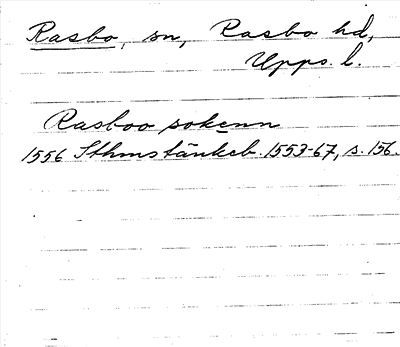 Rasbo, sn, Rasbo hd,
Upps. l.
Rasboo sokenn
1556 Sthmstänkeb. 1553-67, s. 156.